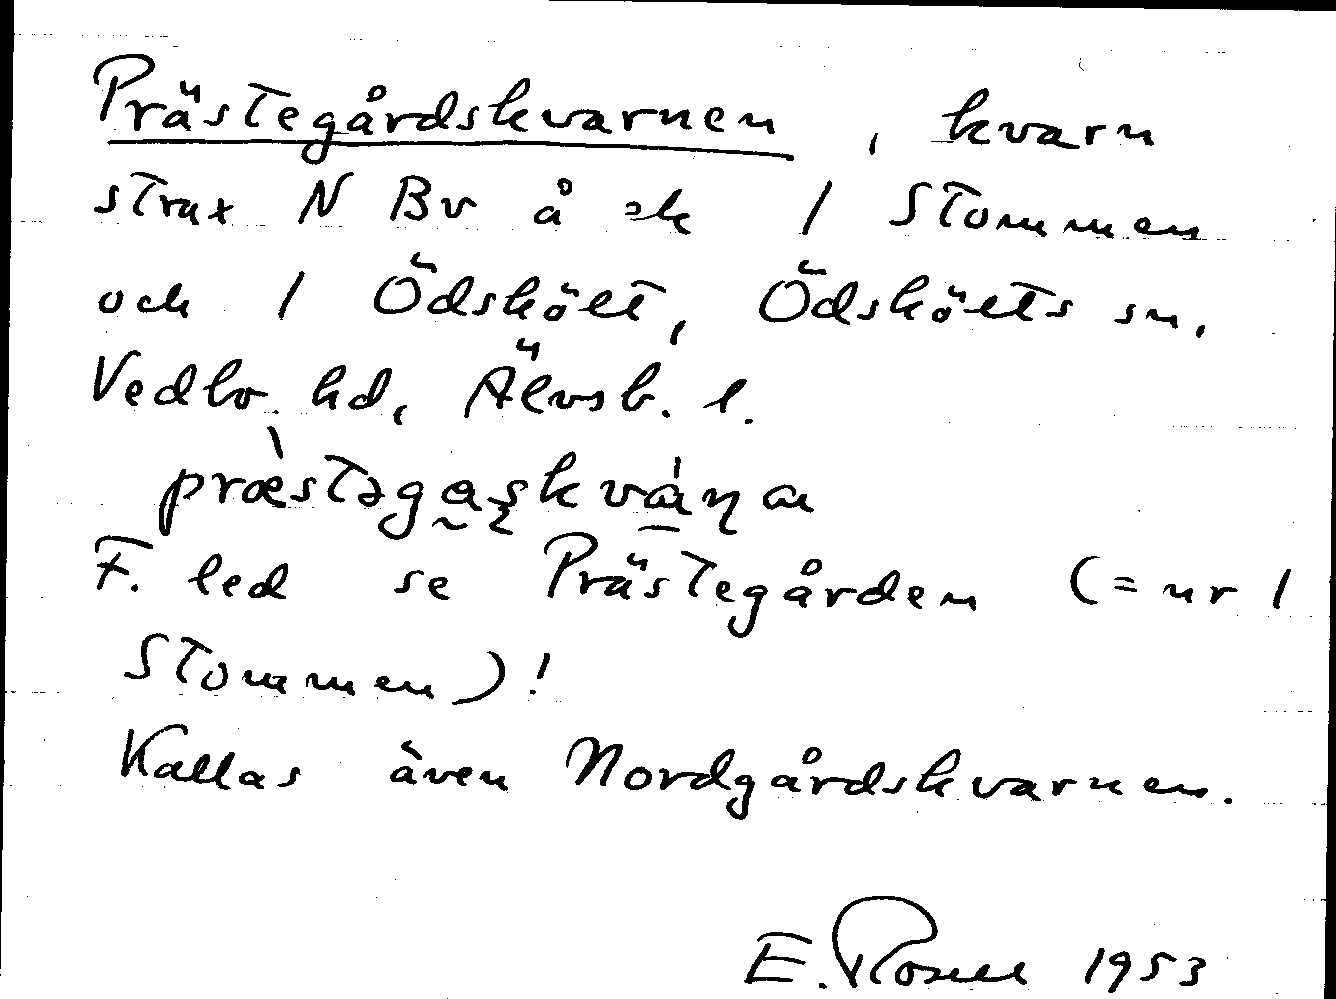 Prästegårdskvarnen, kvarn
strax N Bv å ek 1 Stommen
och 1 Ödskölt, Ödskölts sn,
Vedbo hd, Älvsb. l.
præ̀stəgaşkváɳa
F. led se Prästegården (= nr 1
Stommen)!
Kallas även Nordgårdskvarnen.
E. Rosell 1953